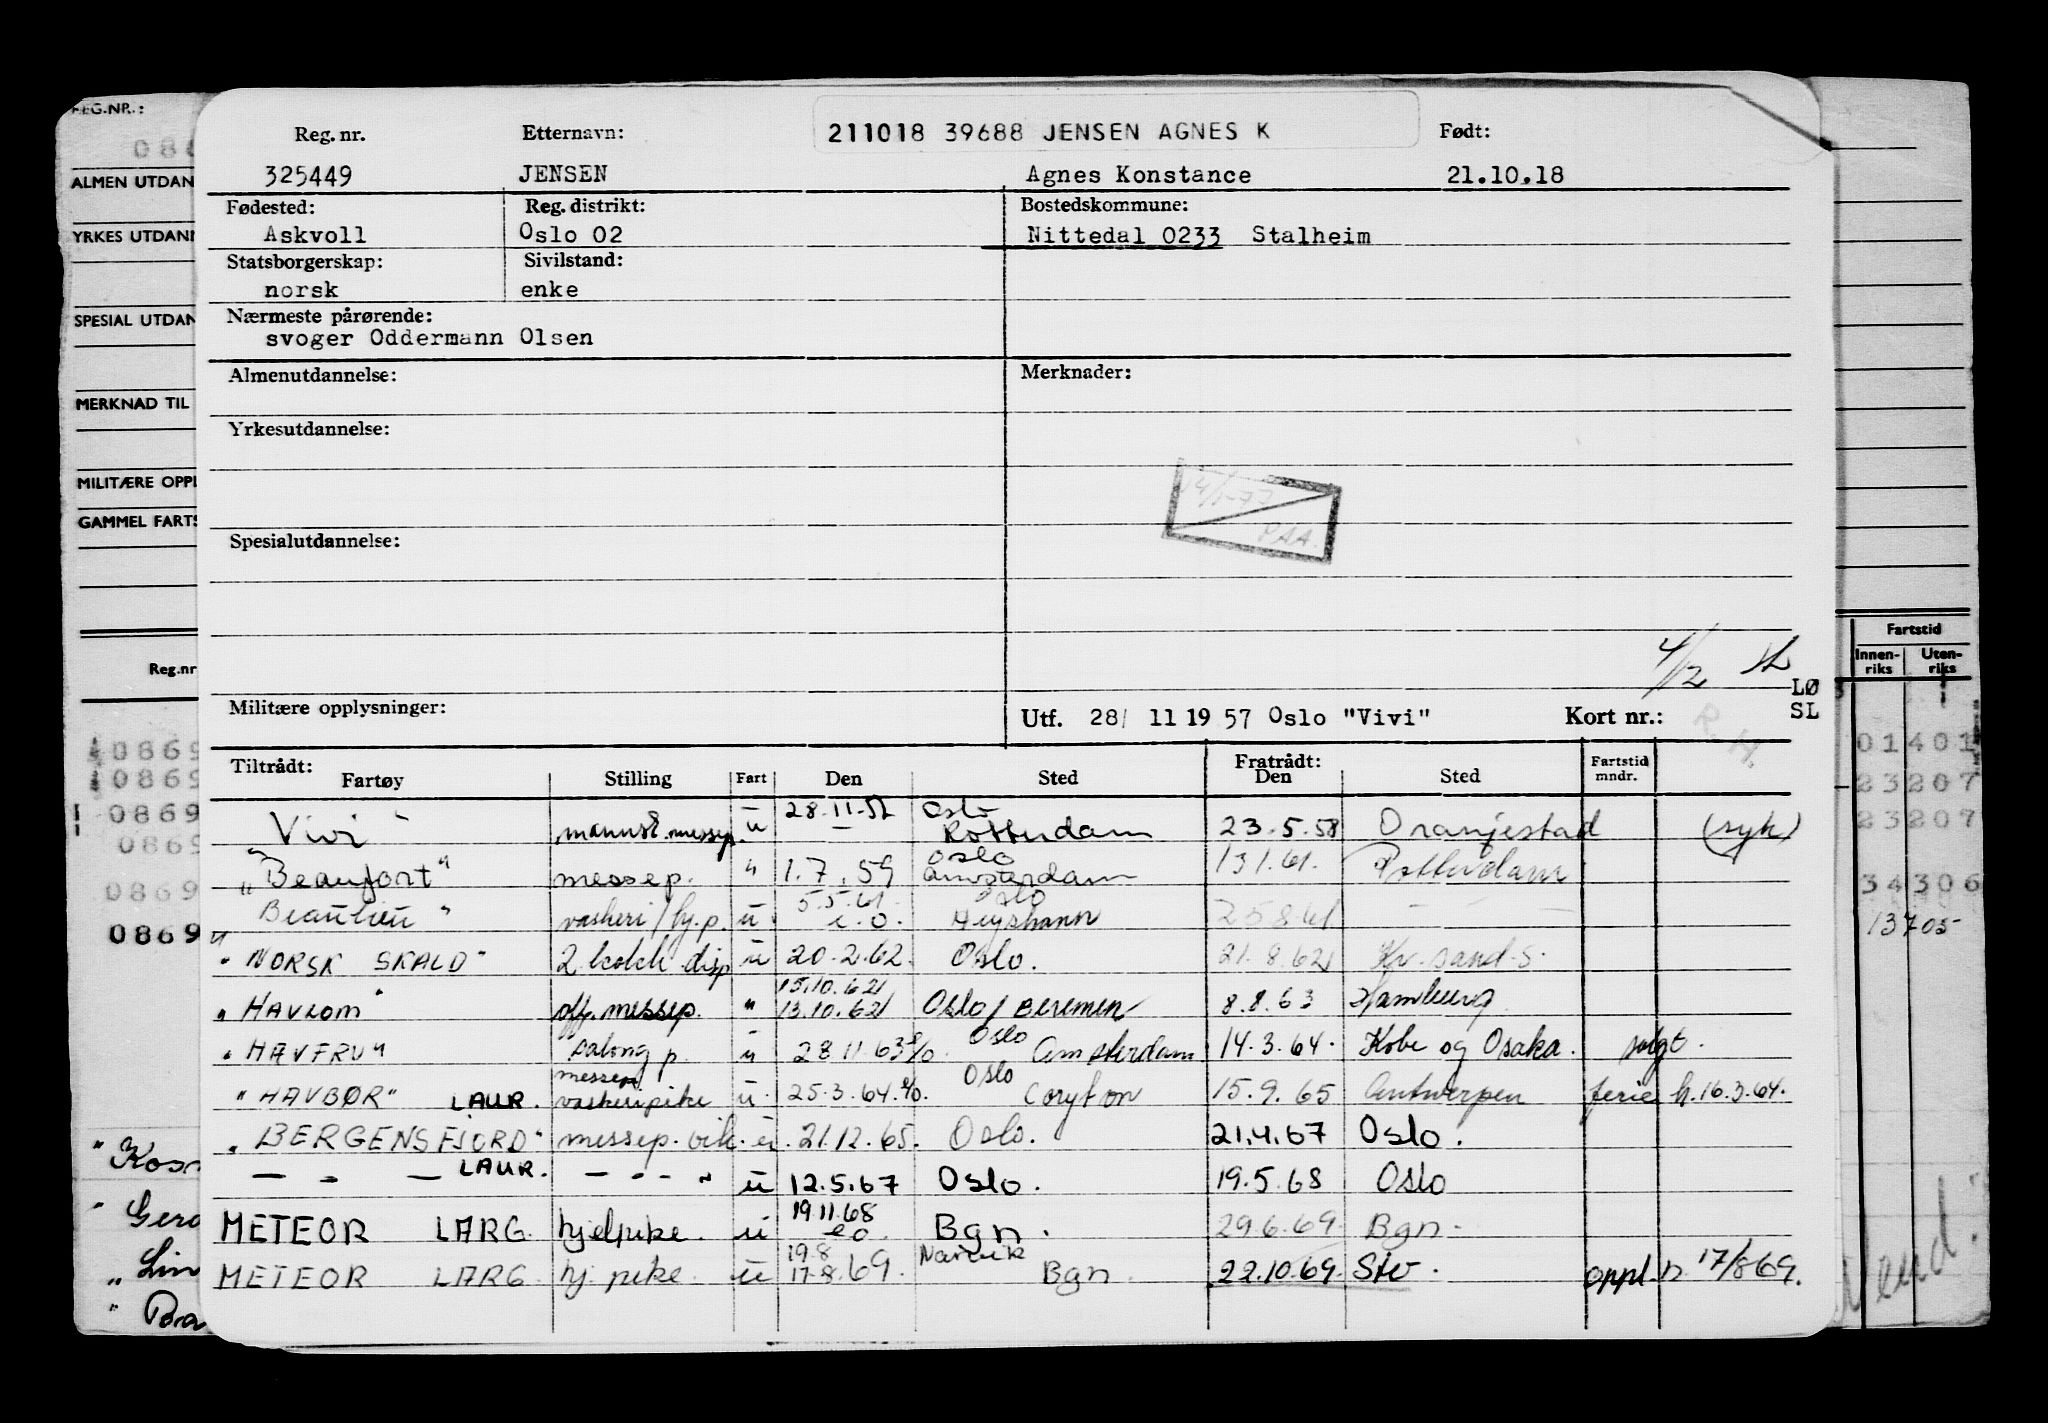 REG.NR.:
ALMEN UTDAN
YRKES UTDANN
SPESIAL UTDAN
MERKNAD TIL
MILITÆRE OPPL
GAMMEL FARTS
Reg.nr
0869
0869
0869
0869
0869
0869
"Kosm
" Gero
" Lin
" Bra
211018 39688 JENSEN AGNES K
Reg. nr. Etternavn: Født:
325449 JENSEN Agnes Konstance 21.10.18
Fødested: Reg. distrikt: Bostedskommune:
Askvoll Oslo 02 Nittedal 0233 Stalheim
Statsborgerskap: Sivilstand:
norsk enke
Nærmeste pårørende:
svoger Oddermann Olsen
Almenutdannelse: Merknader:
Yrkesutdannelse:
14/1-77
PAA.
Spesialutdannelse:
4/2
LØ
SL
Militære opplysninger: Utf. 28/ 11 19 57 Oslo "Vivi" Kort nr.:
R.H.
Tiltrådt: Fratrådt:
Fartøy Stilling Fart Den Sted Den Sted Fartstid mndr.
Vivi" mannsk. messep. u 28.11.57 Oslo Rotterdam 23.5.58 Oranjestad (syk)
"Beaufort" messep. " 1.7.59 Oslo Amsterdam 13.1.61. Rotterdam
"Beaulieu" vaskeri/hj.p. u. 5.5.61 e.o. Oslo 25.8.61 - - -
"NORSK SKALD" 2.kokk disp u 20.2.62. Oslo. 21.8.62 Kr. sand. S.
"HAVLOM" off. messep. " 15.10.62 13.10.62 Oslo/Beremen 8.8.63 Hamburg
"HAVFRU" salong p. u 28.11.63 e/o. Oslo Amsterdam 14.3.64. Kobe og Osaka. solgt.
"HAVBØR" LAUR. messep vaskeripike u. 25.3.64. e/o. Oslo Coryton 15.9.65 Antwerpen ferie h. 16.3.64.
"BERGENSFJORD" messep. vik. u. 21.12.65. Oslo. 21.4.67 Oslo.
— - — LAUR. — - - " u 12.5.67 Oslo. 19.5.68 Oslo
METEOR LARG. hjelpike. u 19.11.68 eo. Bgn. 29.6.69. Bgn.
METEOR LARG. hj. pike. u 19.8 17.8.69. Narvik Bgn. 22.10.69. Stv. oppl. n. 17/8 69.
Fartstid
Innen-riks Uten-riks
01401
23207
23207
34306
13705